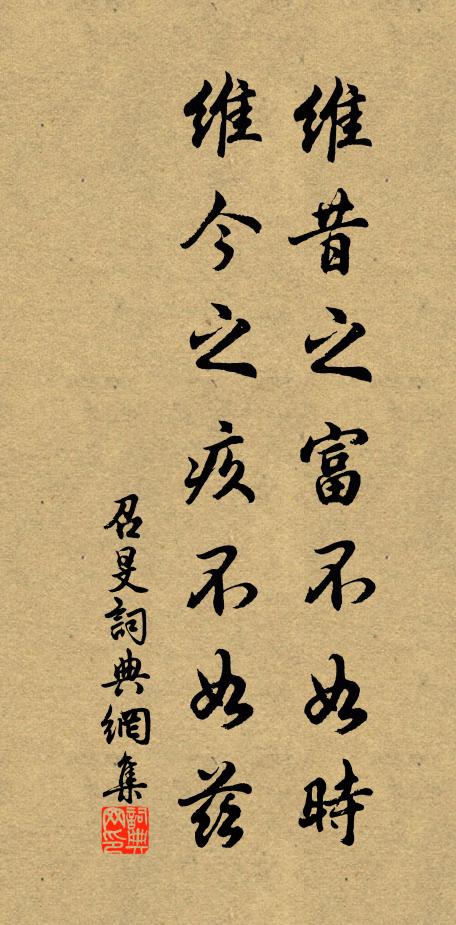 維昔之富不如時
維今之疚不如茲
召旻詞典網集
詞典網印